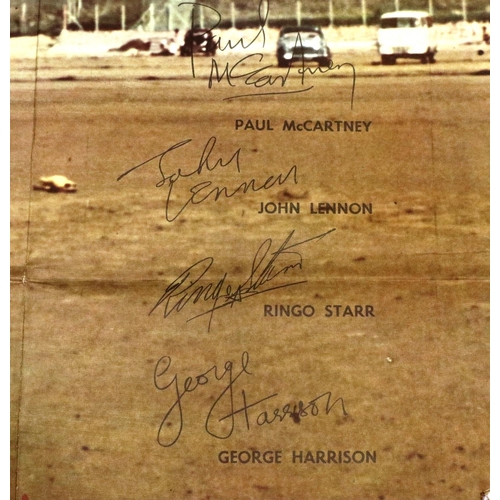 Paul
McCartney
PAUL McCARTNEY
John
Lennon
JOHN LENNON
Ringo Starr
RINGO STARR
George
Harrison
GEORGE HARRISON